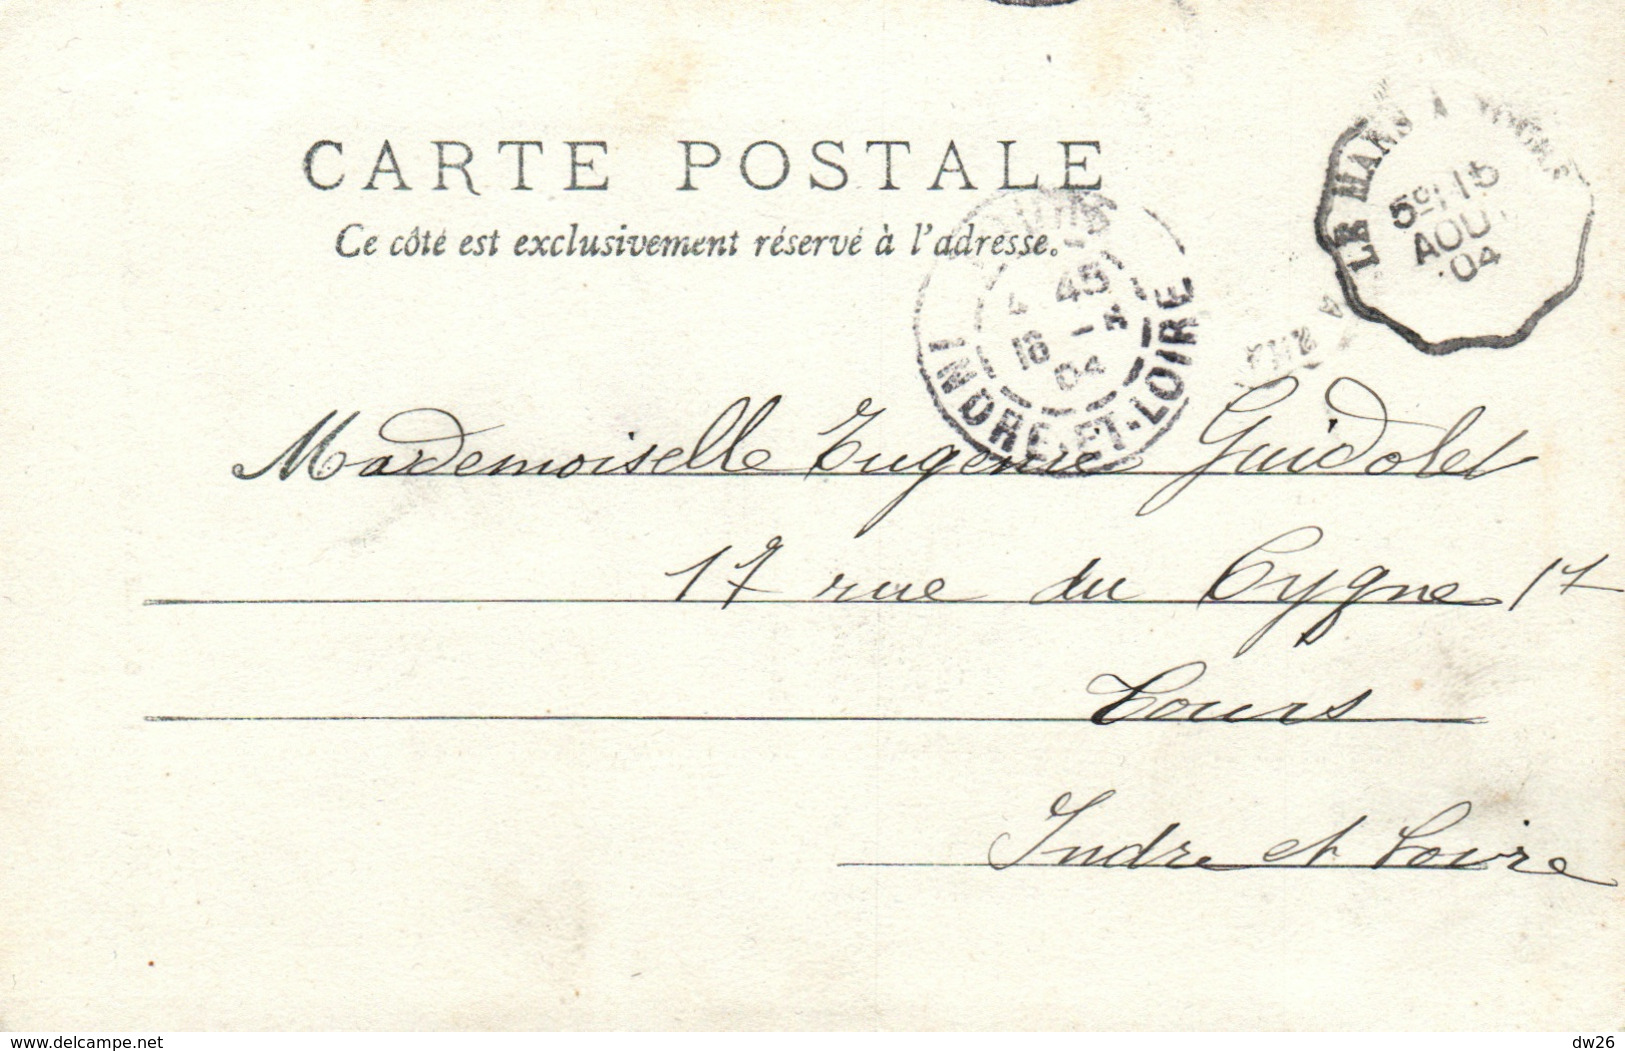 CARTE POSTALE
Ce côté est exclusivement réservé à l'adresse.
LE MANS A TOURS
15
AOU
04
45
16
04
INDRE-ET-LOIRE
Mademoiselle Eugenie Guidolet
17 rue du Cygne 17
Tours
Indre et Loire
www.delcampe.net
dw26